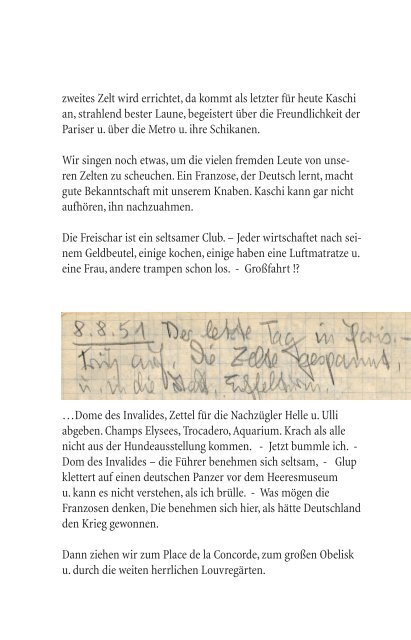 zweites Zelt wird errichtet, da kommt als letzter für heute Kaschi
an, strahlend bester Laune, begeistert über die Freundlichkeit der
Pariser u. über die Metro u. ihre Schikanen.
Wir singen noch etwas, um die vielen fremden Leute von unse-
ren Zelten zu scheuchen. Ein Franzose, der Deutsch lernt, macht
gute Bekanntschaft mit unserem Knaben. Kaschi kann gar nicht
aufhören, ihn nachzuahmen.
Die Freischar ist ein seltsamer Club. – Jeder wirtschaftet nach sei-
nem Geldbeutel, einige kochen, einige haben eine Luftmatratze u.
eine Frau, andere trampen schon los.  -  Großfahrt !?
8.8.51. Der letzte Tag in Paris.–
Früh auf. Die Zelte gespannt,
u. in die Stadt, Eiffelturm.
…Dome des Invalides, Zettel für die Nachzügler Helle u. Ulli
abgeben. Champs Elysees, Trocadero, Aquarium. Krach als alle
nicht aus der Hundeausstellung kommen.   -   Jetzt bummle ich.  -
Dom des Invalides – die Führer benehmen sich seltsam,  -   Glup
klettert auf einen deutschen Panzer vor dem Heeresmuseum
u. kann es nicht verstehen, als ich brülle.  -  Was mögen die
Franzosen denken, Die benehmen sich hier, als hätte Deutschland
den Krieg gewonnen.
Dann ziehen wir zum Place de la Concorde, zum großen Obelisk
u. durch die weiten herrlichen Louvregärten.